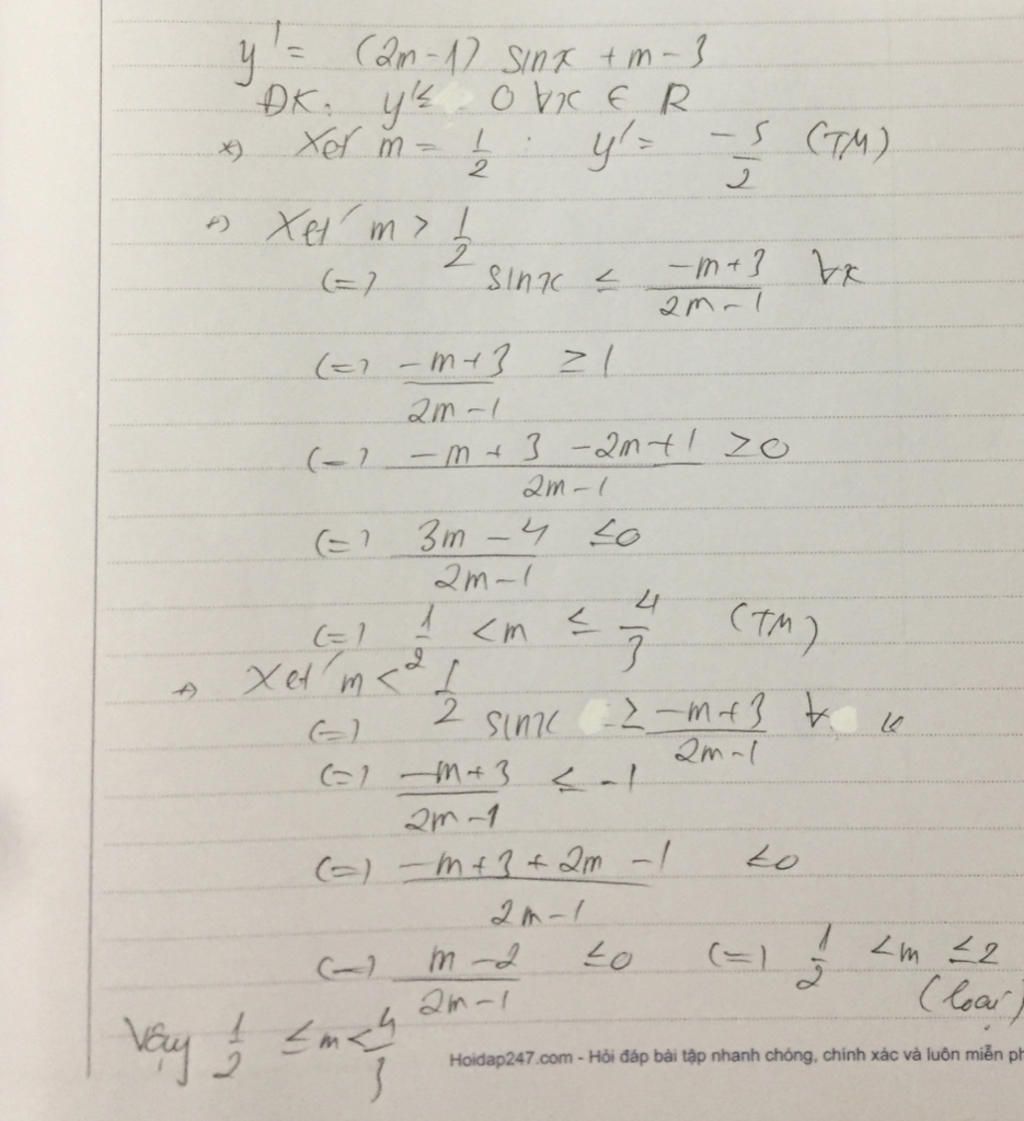 y' = (2m-1) sinx + m - 3
ĐK: y' ≤ 0 ∀x ∈ R
*) Xét m = 1/2 : y' = -5/2 (TM)
*) Xét m > 1/2
(=) sinx ≤ (-m+3)/(2m-1) ∀x
(=) (-m+3)/(2m-1) ≥ 1
(=) (-m+3-2m+1)/(2m-1) ≥ 0
(=) (3m-4)/(2m-1) ≤ 0
(=) 1/2 < m ≤ 4/3 (TM)
*) Xét m < 1/2
(=) sinx ≥ (-m+3)/(2m-1) ∀
(=) (-m+3)/(2m-1) ≤ -1
(=) (-m+3+2m-1)/(2m-1) ≤ 0
(=) (m-2)/(2m-1) ≤ 0 (=) 1/2 < m ≤ 2
(loại)
Vậy 1/2 ≤ m < 4/3
Hoidap247.com - Hỏi đáp bài tập nhanh chóng, chính xác và luôn miễn ph